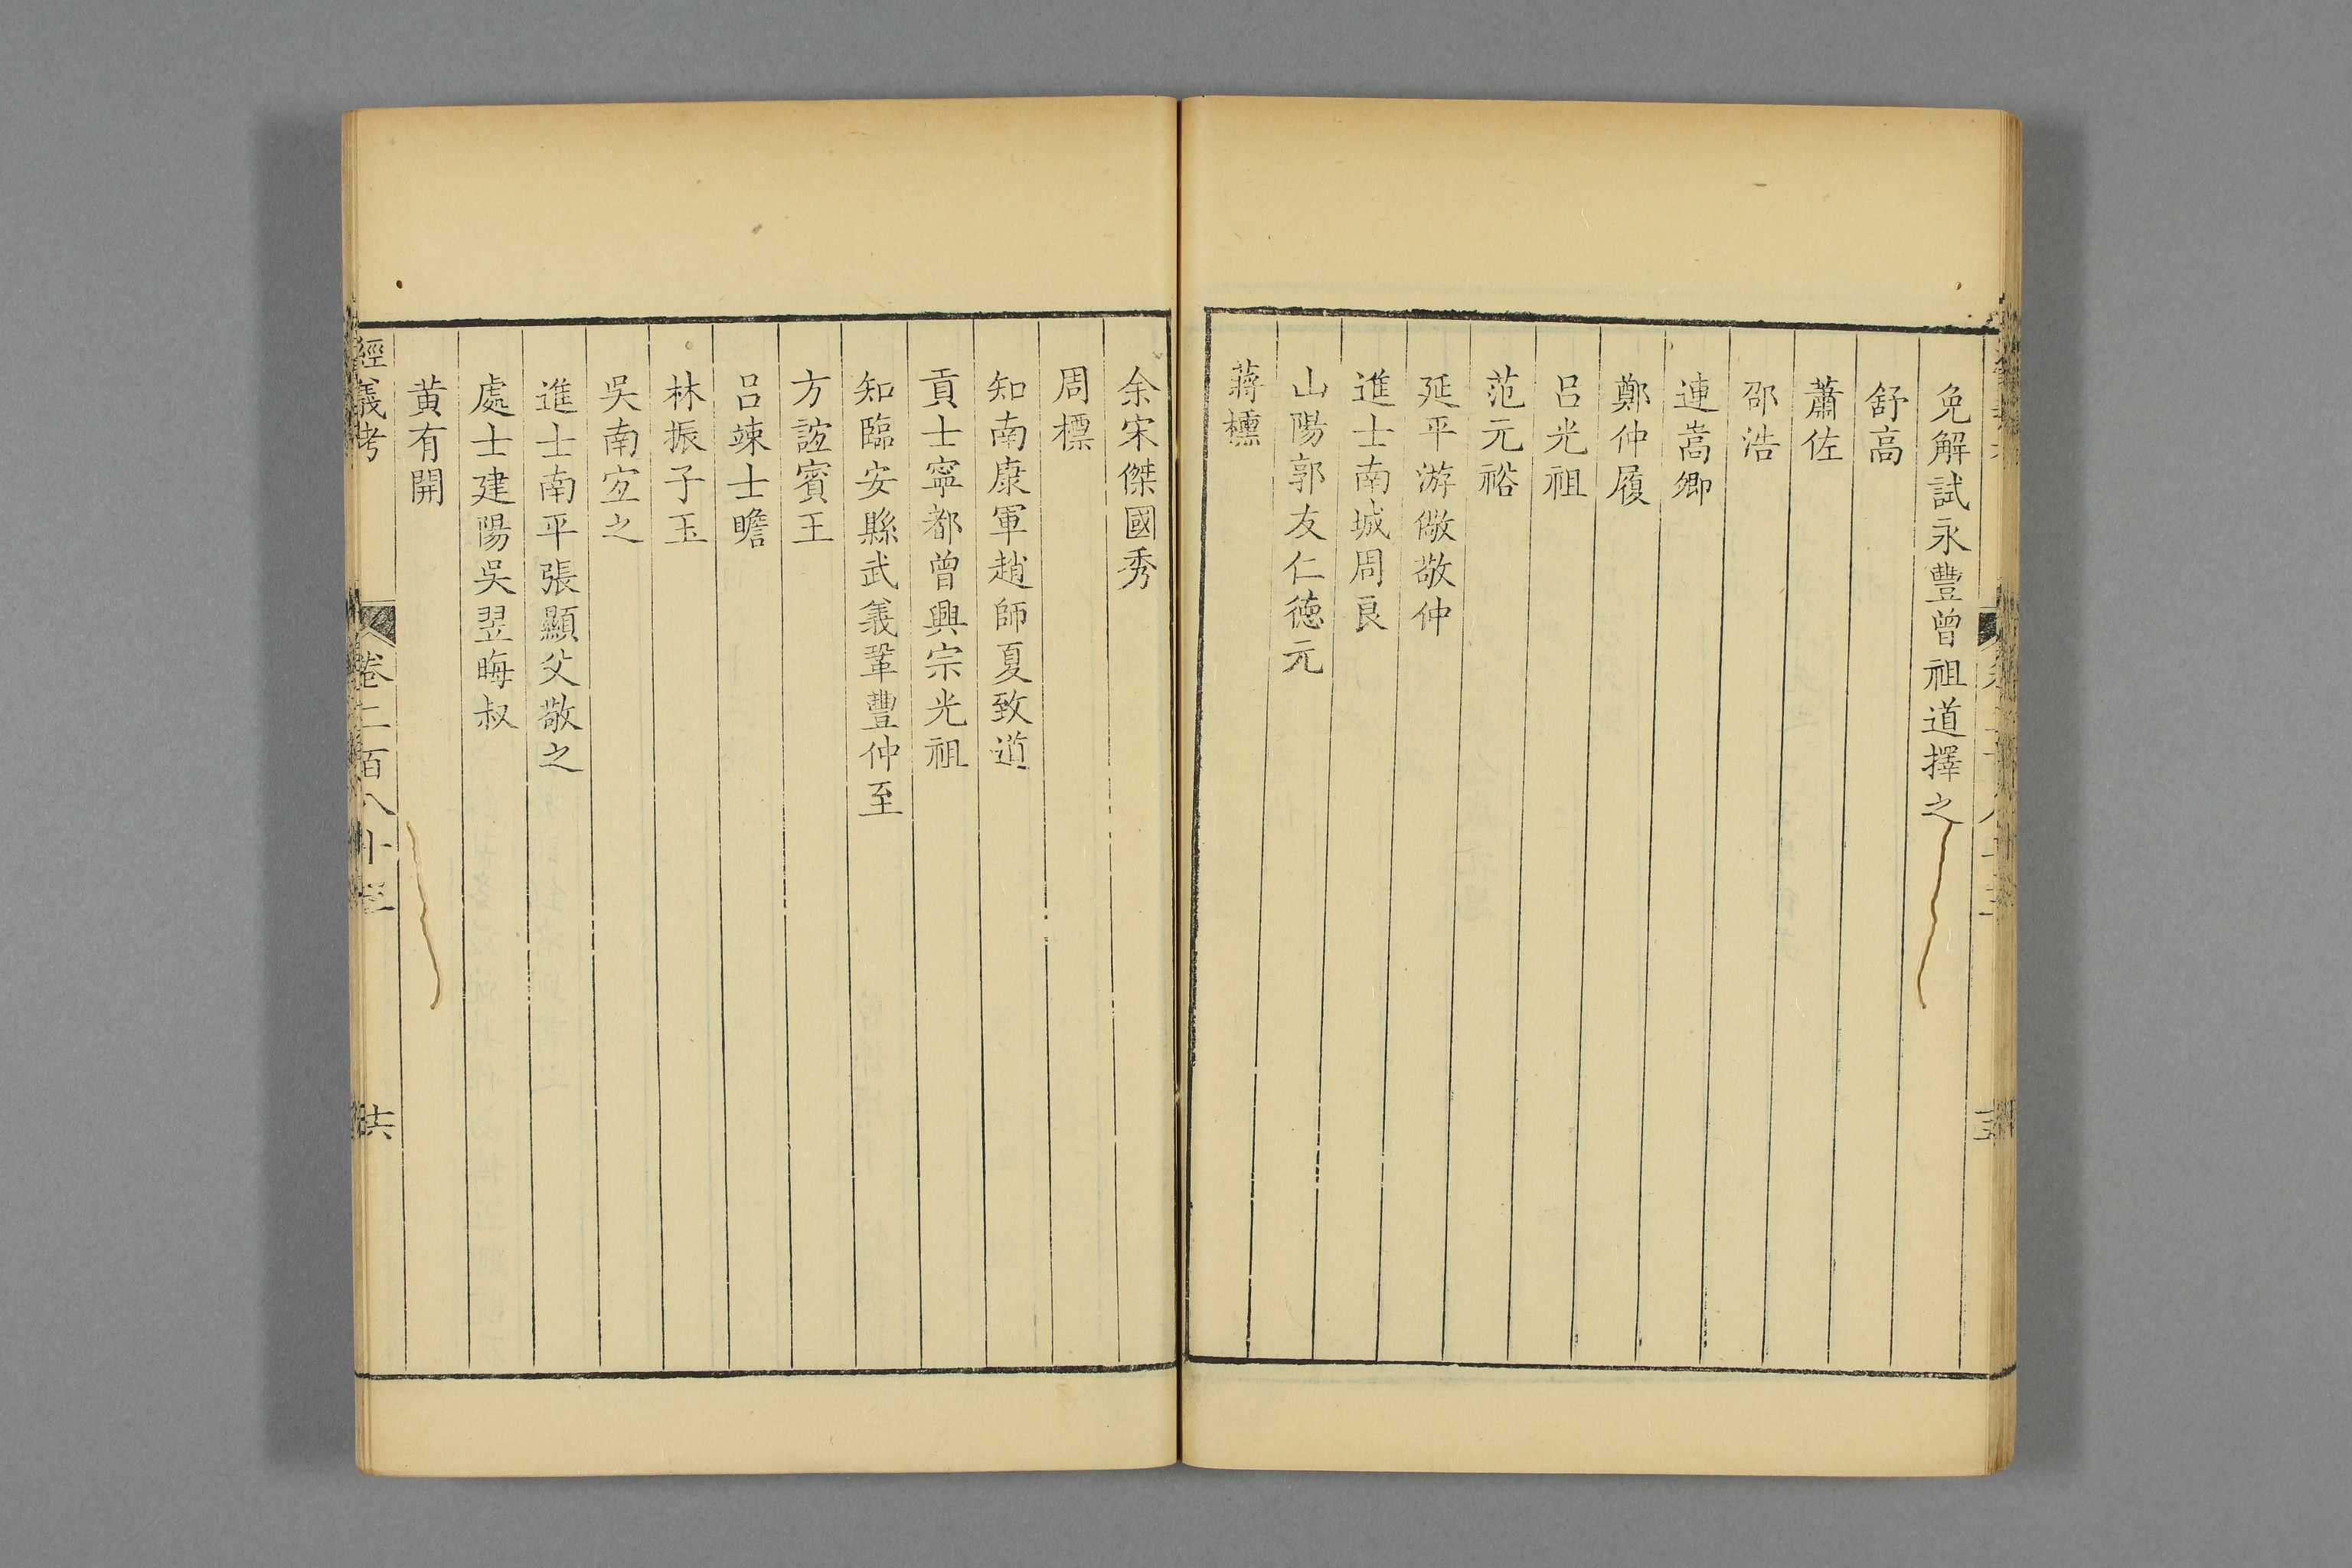 免解試永豐曾祖道擇之
舒高
蕭佐
邵浩
連嵩卿
鄭仲履
呂光祖
范元裕
延平游儆敬仲
進士南城周良
山陽郭友仁德元
蔣櫄
余宋傑國秀
周標
知南康軍趙師夏致道
貢士寧都曾興宗光祖
知臨安縣武義鞏豐仲至
方誼賓王
呂竦士瞻
林振子玉
吳南宜之
進士南平張顯父敬之
處士建陽吳翌晦叔
黃有開
經義考 卷二百八十三 十六